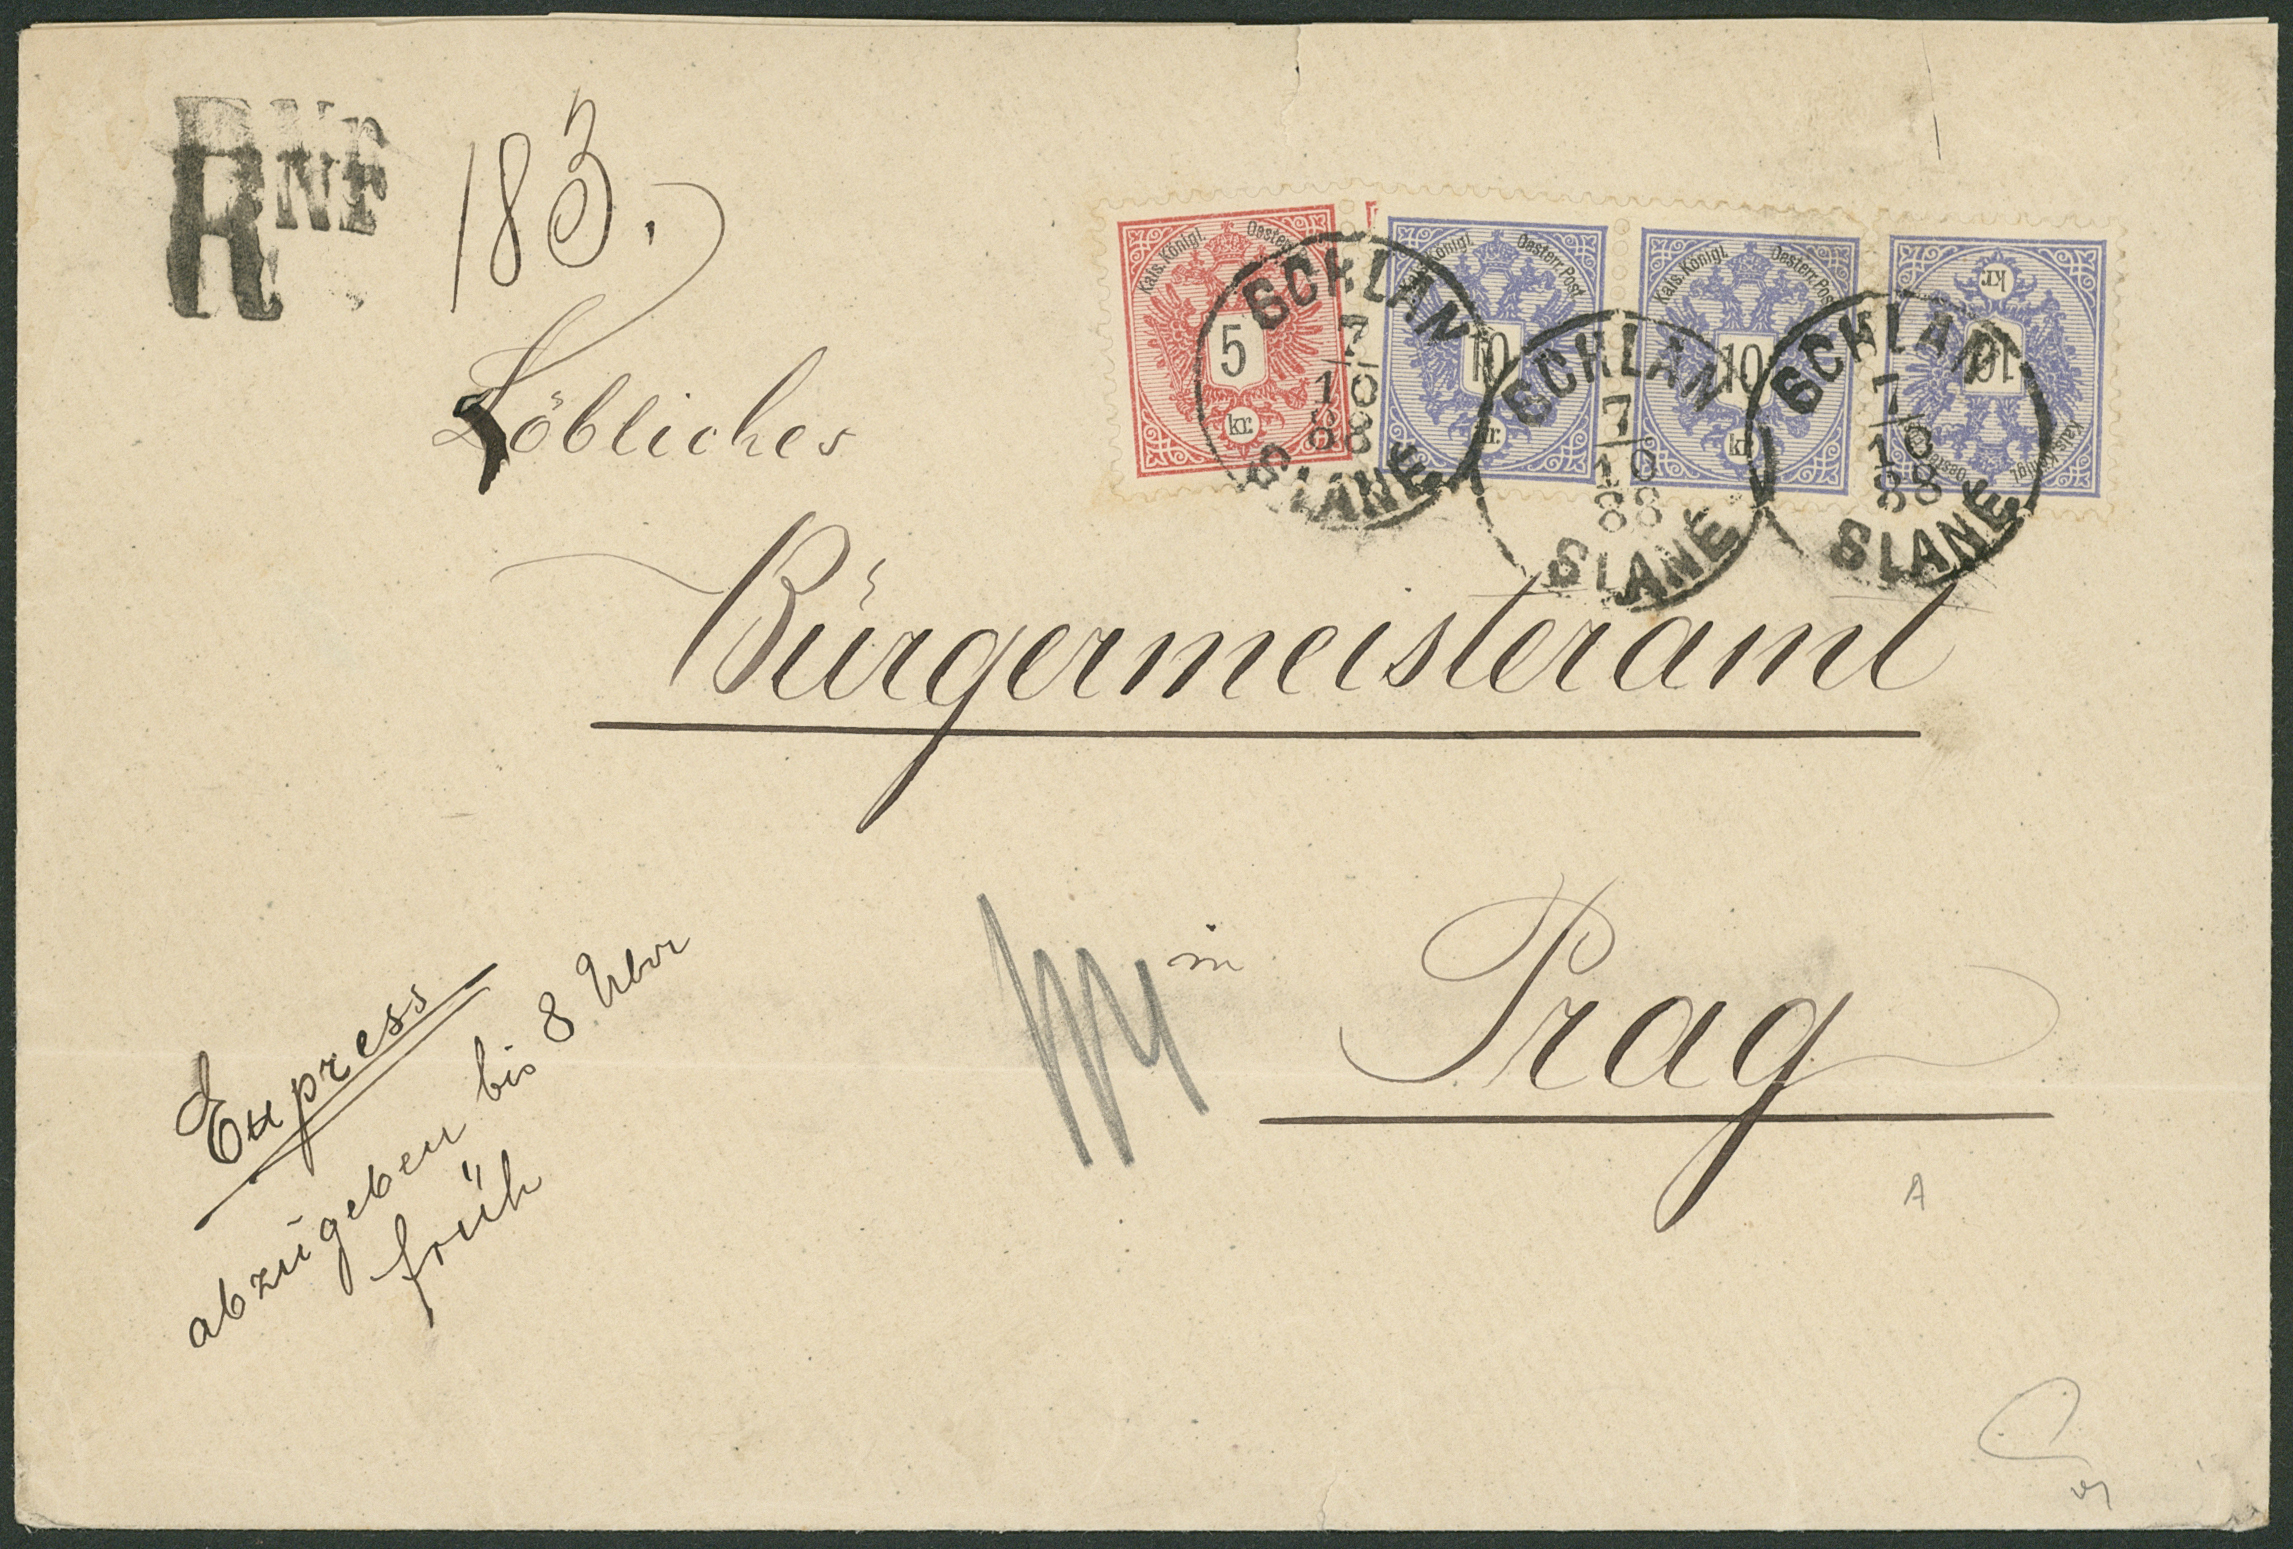 R Nr
R Nr
183.
Kais. Königl. Oesterr.
5
kr.
Kais. Königl. Oesterr. Post
10
kr.
Kais. Königl. Oesterr. Post
10
kr.
Kais. Königl. Oesterr.
10
kr.
SCHLAN
7
10
88
SLANÉ
SCHLAN
7
10
88
SLANÉ
SCHLAN
7
10
88
SLANÉ
Löbliches
Bürgermeisteramt
in
Prag
Express
abzugeben bis 8 Uhr
früh
A